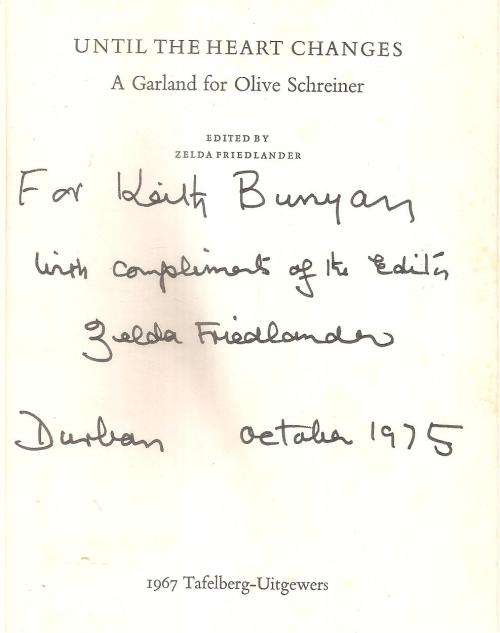 UNTIL THE HEART CHANGES
A Garland for Olive Schreiner
EDITED BY
ZELDA FRIEDLANDER
For Keith Bunyan
With compliments of the Editor
Zelda Friedlander
Durban October 1975
1967 Tafelberg-Uitgewers